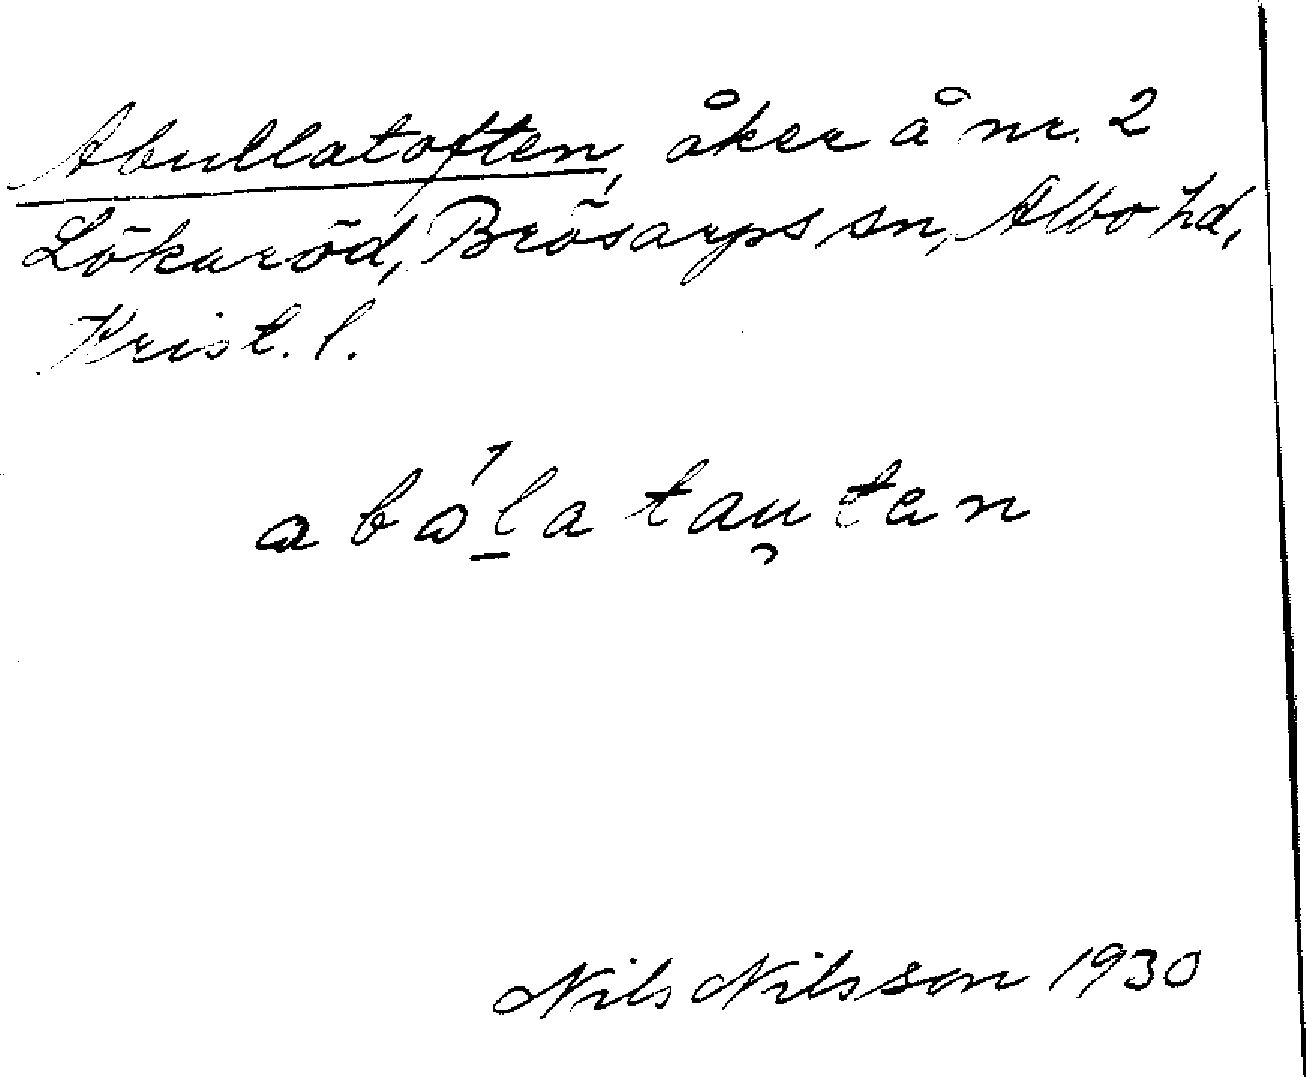 Abullatoften, åker å nr. 2
Lökaröd, Brösarps sn, Albo hd,
Krist. l.
abólatau̯tan
Nils Nilsson 1930